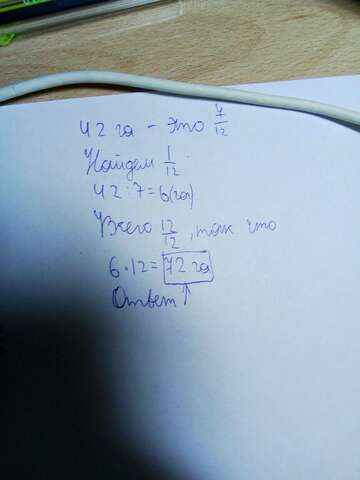 42 га - это 7/12
Найдем 1/12
42 : 7 = 6(га)
Всего 12/12, так что
6 · 12 = 72 га
Ответ ↑